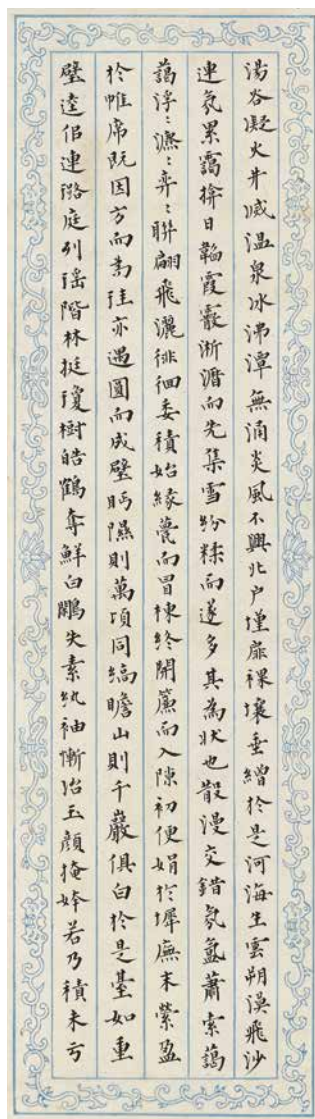 湯谷凝火井滅温泉冰沸潭無涌炎風不興北户墐扉裸壤垂繒於是河海生雲朔漠飛沙
連氛累靄揜日韜霞霰淅瀝而先集雪紛糅而遂多其為狀也散漫交錯氛氳蕭索藹
藹浮〻瀌〻弈〻聯翩飛灑徘徊委積始緣甍而冒棟終開簾而入隙初便娟於墀廡末縈盈
於帷席既因方而為珪亦遇圓而成璧眄隰則萬頃同縞瞻山則千巖俱白於是臺如重
璧逵佀連璐庭列瑶階林挺瓊樹皓鶴奪鮮白鷴失素紈袖慚冶玉顔掩姱若乃積未亏